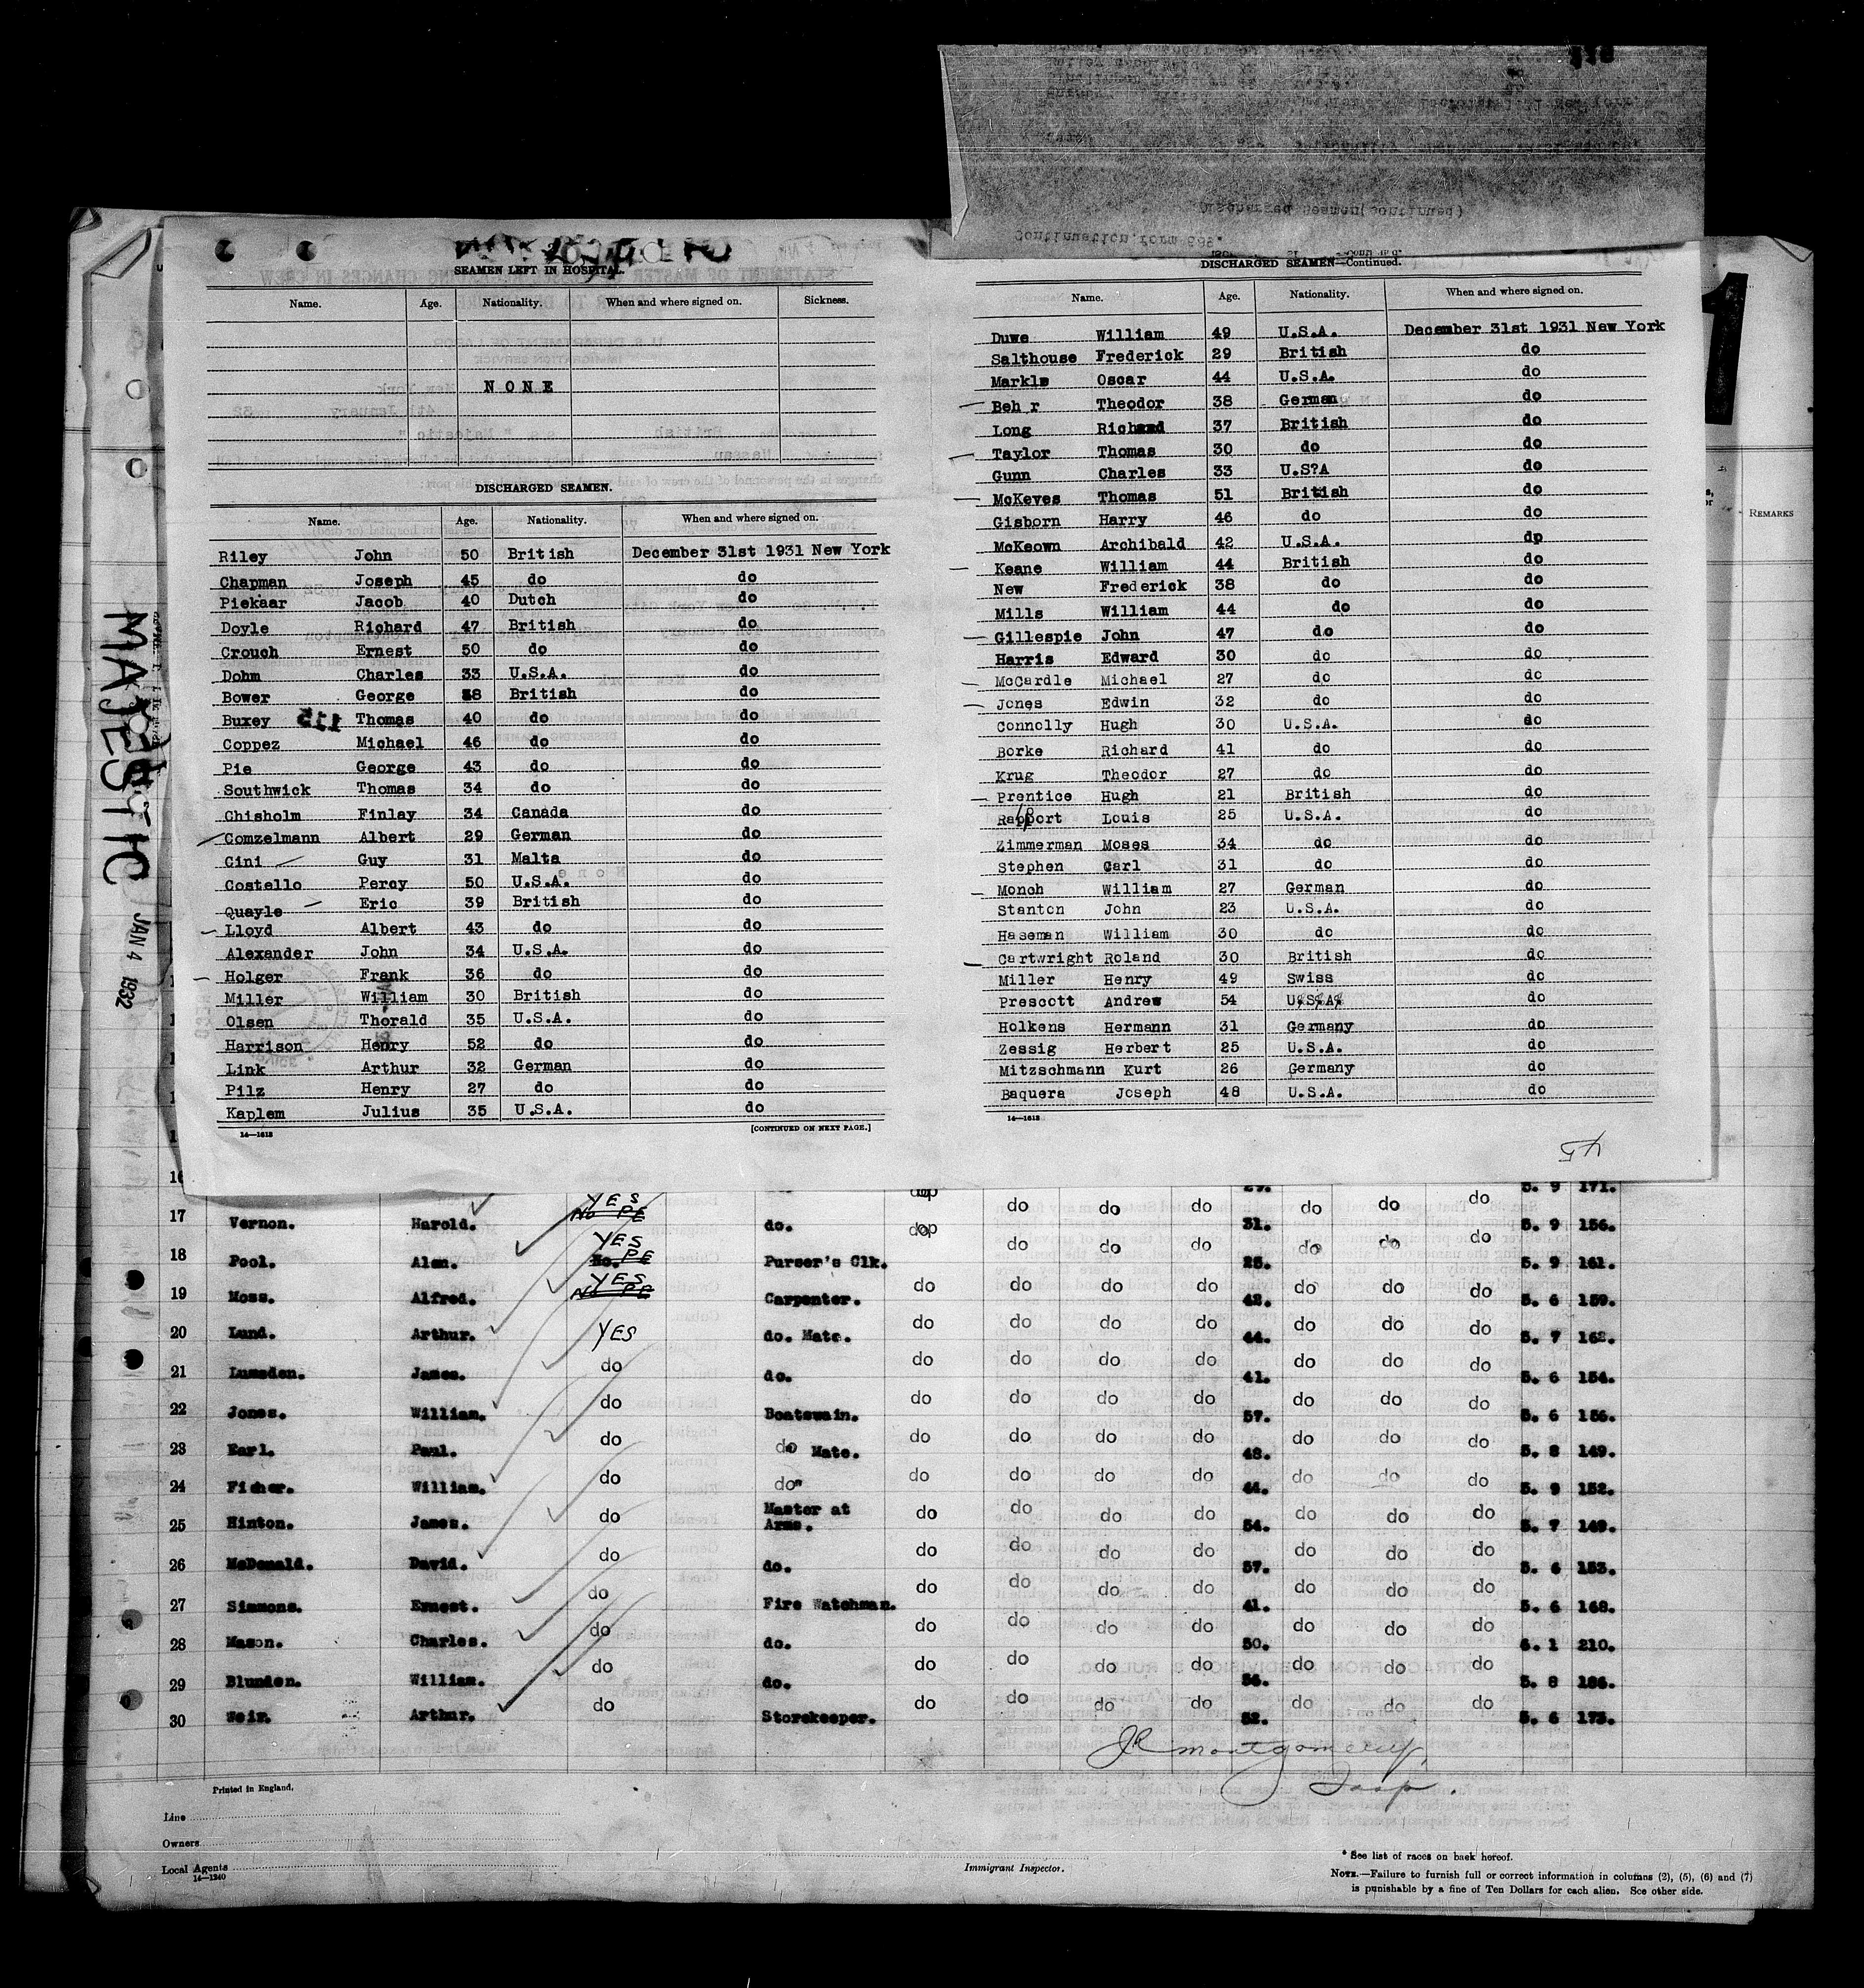 SEAMEN LEFT IN HOSPITAL.
Name. Age. Nationality. When and where signed on. Sickness.
NONE
DISCHARGED SEAMEN.
Name. Age. Nationality. When and where signed on.
Riley John 50 British December 31st 1931 New York
Chapman Joseph 45 do do
Piekaar Jacob 40 Dutch do
Doyle Richard 47 British do
Crouch Ernest 50 do do
Dohm Charles 33 U.S.A. do
Bower George 38 British do
Buxey 115 Thomas 40 do do
Coppez Michael 46 do do
Pie George 43 do do
Southwick Thomas 34 do do
Chisholm Finlay 34 Canada do
Comzelmann Albert 29 German do
Cini Guy 31 Malta do
Costello Percy 50 U.S.A. do
Quayle Eric 39 British do
Lloyd Albert 43 do do
Alexander John 34 U.S.A. do
Holger Frank 36 do do
Miller William 30 British do
Olsen Thorald 35 U.S.A. do
Harrison Henry 52 do do
Link Arthur 32 German do
Pilz Henry 27 do do
Kaplem Julius 35 U.S.A. do
14—1612 [CONTINUED ON NEXT PAGE.]
Continuation form 689.
Discharged Seamen(continued)
DISCHARGED SEAMEN—Continued.
Name. Age. Nationality. When and where signed on.
Duwe William 49 U.S.A. December 31st 1931 New York
Salthouse Frederick 29 British do
Markle Oscar 44 U.S.A. do
Beh r Theodor 38 German do
Long Richard 37 British do
Taylor Thomas 30 do do
Gunn Charles 33 U.S?A do
McKeves Thomas 51 British do
Gisborn Harry 46 do do
McKeown Archibald 42 U.S.A. do
Keane William 44 British do
New Frederick 38 do do
Mills William 44 do do
Gillespie John 47 do do
Harris Edward 30 do do
McCardle Michael 27 do do
Jones Edwin 32 do do
Connolly Hugh 30 U.S.A. do
Borke Richard 41 do do
Krug Theodor 27 do do
Prentice Hugh 21 British do
Rapport Louis 25 U.S.A. do
Zimmerman Moses 34 do do
Stephen Carl 31 do do
Monch William 27 German do
Stanton John 23 U.S.A. do
Haseman William 30 do do
Cartwright Roland 30 British do
Miller Henry 49 Swiss do
Prescott Andrew 54 U.S.A. do
Holkens Hermann 31 Germany do
Zessig Herbert 25 U.S.A. do
Mitzschmann Kurt 26 Germany do
Baquera Joseph 48 U.S.A. do
14—1612
45
1
REMARKS
MAJESTIC
JAN 4 1932
16 YES do do do do do do 5. 9 171.
17 Vernon. Harold. No PE do. do do do do 31. do do do 5. 9 156.
18 Pool. Alan. YES No. PE Purser's Clk. do do do 25. do do do 5. 9 161.
19 Moss. Alfred. YES No PE Carpenter. do do do do 42. do do do 5. 6 159.
20 Lund. Arthur. YES do. Mate. do do do do 44. do do do 5. 7 162.
21 Lumsden. James. do do. do do do do 41. do do do 5. 6 154.
22 Jones. William. do Boatswain. do do do do 57. do do do 5. 6 156.
23 Earl. Paul. do do Mate. do do do do 48. do do do 5. 8 149.
24 Fisher. William. do do" do do do do 44. do do do 5. 9 152.
25 Hinton. James. do Master at Arms. do do do do 54. do do do 5. 7 149.
26 McDonald. David. do do. do do do do 57. do do do 5. 6 153.
27 Simmons. Ernest. do Fire Watchman. do do do do 41. do do do 5. 6 168.
28 Mason. Charles. do do. do do do do 50. do do do 6. 1 210.
29 Blunden. William. do do. do do do do 56. do do do 5. 8 186.
30 Weir. Arthur. do Storekeeper. do do do do 52. do do do 5. 6 173.
JR Montgomery,
Insp.
Printed in England.
Line
Owners
Local Agents
14—1240
Immigrant Inspector.
* See list of races on back hereof.
NOTE.—Failure to furnish full or correct information in columns (2), (5), (6) and (7)
is punishable by a fine of Ten Dollars for each alien. See other side.